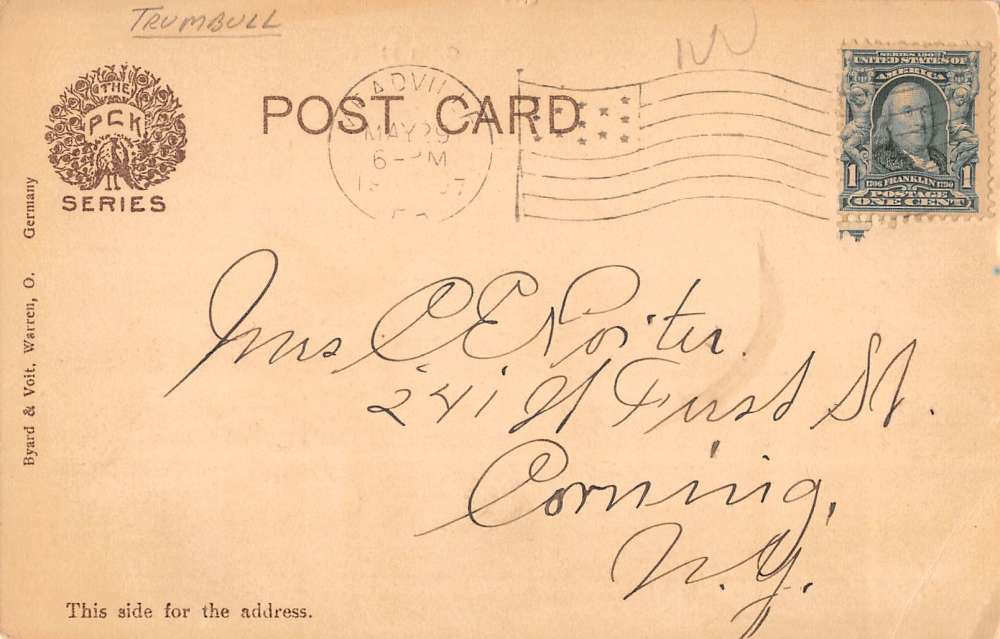 TRUMBULL
THE
PCK
SERIES
POST CARD
MAY 29
6-PM
SERIES 1902
UNITED STATES OF
AMERICA
1 1
1706 FRANKLIN 1790
POSTAGE
ONE CENT
Byard & Voit, Warren, O. Germany
Mrs C E Porter.
241 W First St.
Corning,
N.Y.
This side for the address.